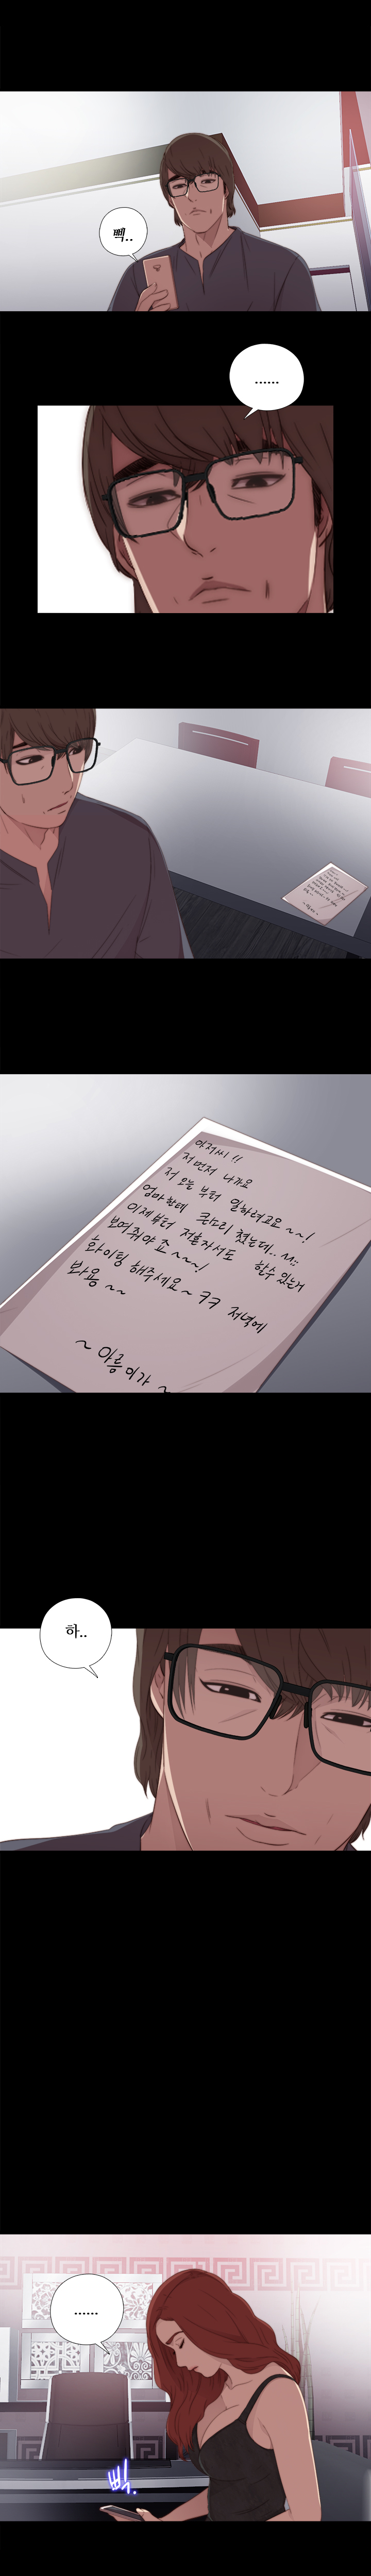 삑..
......
아저씨!!
저 먼저 나가요
저 오늘 부터 일하려고요~~!
엄마한테 큰소리 쳤는데.. ^^;;
이제부터 저혼자서도 할수 있는거
보여줘야죠~~~!
화이팅 해주세요~ ㅋㅋ 저녁에
봐용~~
~아름이가~
하..
......
삑..